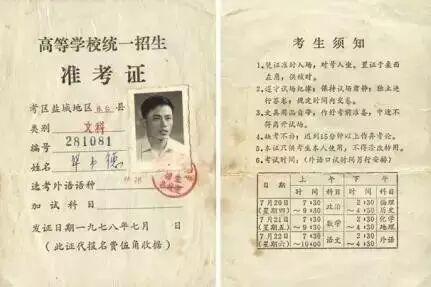 高等学校统一招生
准考证
考区盐城地区 县
类别 文科
编号 281081
姓名
选考外语语种
加试科目
发证日期一九七八年七月 日
(此证代报名费伍角收据)
考生须知
1.凭证准时入场,对号入座。置证于桌面
左角,供核对。
2.遵守试场纪律,保持试场肃静,独立进
行答卷,规定时间内交卷。
3.文具用品自予,作好考前准备,中途不
得离开试场。
4.缺考不补,迟到15分钟以上作弃考论。
5.本证只供考生本人使用,不得涂改转用。
6.考试时间:(外语口试时间另行安排)
日期 上午 下午
时间 科目 时间 科目
7月20日 (星期四) 7:30~9:30 政治 2:30~4:30 物理 历史
7月21日 (星期五) 7:30~9:30 数学 2:30~4:30 化学 地理
7月22日 (星期六) 7:30~10:00 语文 2:30~4:30 外语